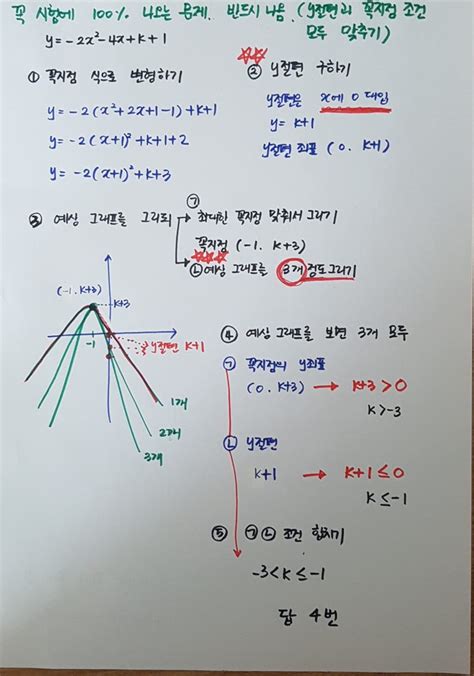 꼭 시험에 100% 나오는 문제. 반드시 나옴. (y절편과 꼭지점 조건
모두 맞추기)
y=-2x²-4x+k+1
① 꼭지점 식으로 변형하기
y=-2(x²+2x+1-1)+k+1
y=-2(x+1)²+k+1+2
y=-2(x+1)²+k+3
② y절편 구하기
y절편은 x에 0 대입
y=k+1
y절편 좌표 (0, k+1)
③ 예상 그래프를 그리되
㉠ 최대한 꼭지점 맞춰서 그리기
꼭지점 (-1, k+3)
㉡ 예상 그래프를 3개 정도 그리기
(-1, k+3)
k+3
-1
y절편 k+1
1개
2개
3개
④ 예상 그래프를 보면 3개 모두
㉠ 꼭지점의 y좌표
(0, k+3) → k+3>0
k>-3
㉡ y절편
k+1 → k+1≤0
k≤-1
⑤ ㉠ ㉡ 조건 합치기
-3<k≤-1
답 4번